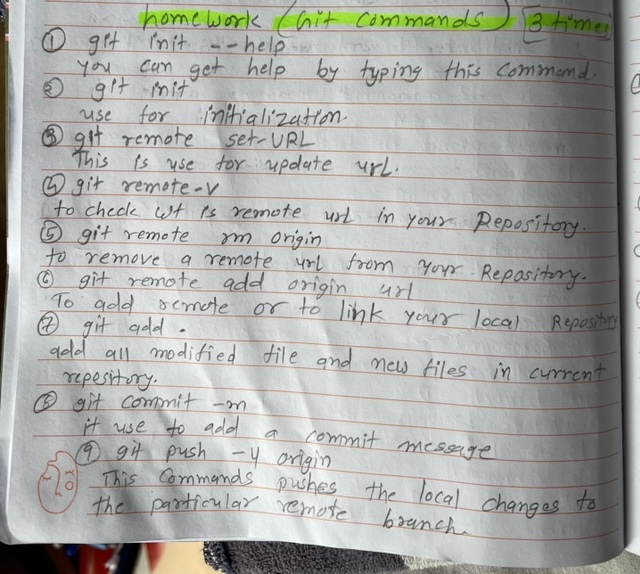 homework (Git commands) [3 times
① git init --help
you can get help by typing this command.
② git init
use for initialization.
③ git remote set-URL
This is use for update url.
④ git remote -v
to check wt is remote url in your Repository.
⑤ git remote rm origin
to remove a remote url from your Repository.
⑥ git remote add origin url
To add remote or to link your local Repository
⑦ git add .
add all modified file and new files in current
repesitory.
⑧ git commit -m
it use to add a commit message
⑨ git push -u origin
This commands pushes the local changes to
the particular remote branch.